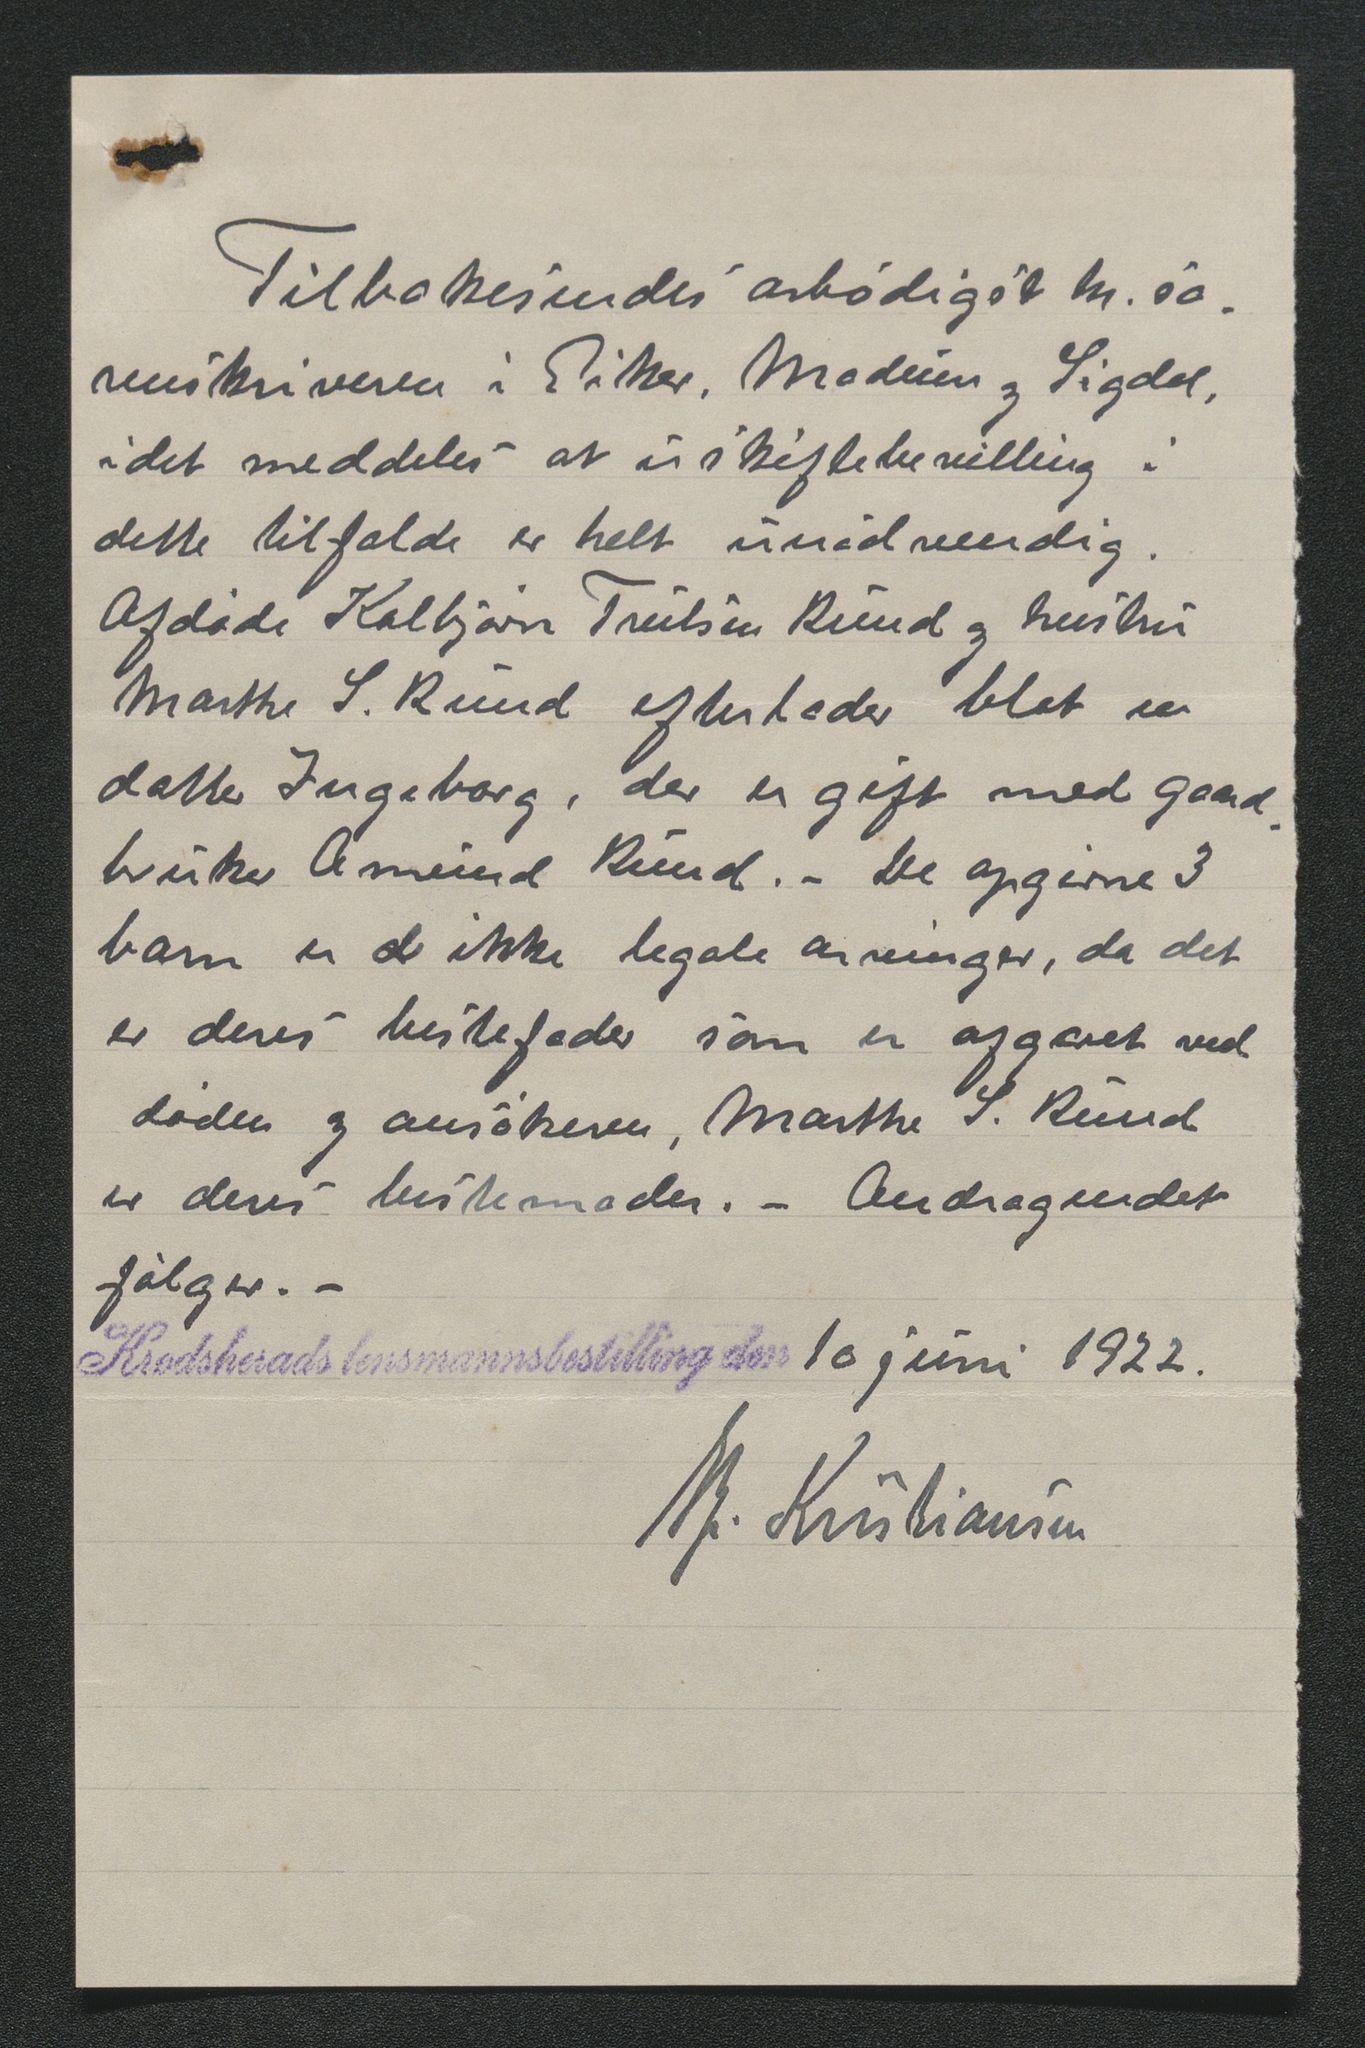 Tilbakesendes ærbødigst hr. so-
renskriveren i Eiker, Modum og Sigdal,
idet meddeles at uskiftebevilling i
dette tilfælde er helt unødvendig.
Afdøde Kolbjørn Trulsen Ruud og hustru
Marthe S. Ruud efterlader blot en
datter Ingeborg, der er gift med gaard-
bruker Amund Ruud. - De opgivne 3
barn er ikke legale arvinger, da det
er deres bestefader som er afgaaet ved
døden og ansøkeren, Marthe S. Ruud
er deres bestemoder. - Andragendet
følger. -
Krødsherads lensmannsbestilling den 10 juni 1922.
Kristiansen